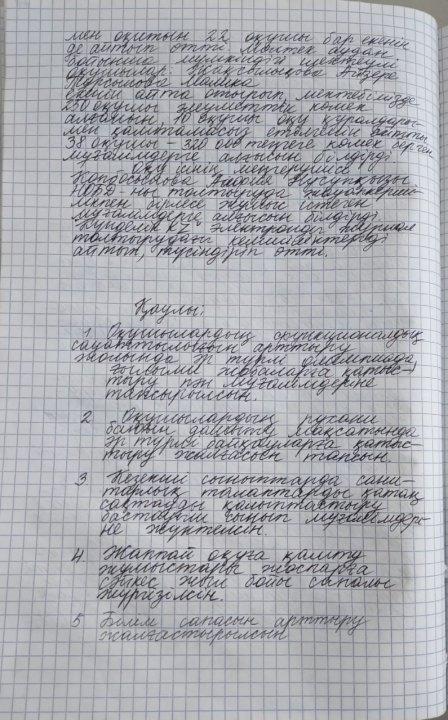 мен оқитын 22 оқушы бар екенін
де айтып өтті. Мектеп аудан
бойынша мүмкіндігі шектеулі
оқушылар: Айзере
Нұрсынова Малика
екенін айта отырып, мектебімізде
250 оқушы әлеуметтік көмек
алғанын, 10 оқушы оқу құралдары-
мен қамтамасыз етілгенін айтты.
38 оқушы - 320 000 теңгеге көмек берген
мұғалімдерге алғысын білдірді
Оқу ісінің меңгерушісі
НОБД-ны толтыруда жауапкерші-
лікпен бірлесе жұмыс істеген
мұғалімдерге алғысын білдірді.
Күнделік kz электронды журнал
толтырудағы кемшіліктерді
айтып, түсіндіріп өтті.
Қаулы:
1 Оқушылардың функционалдық
сауаттылығын арттыру
жолында әр түрлі олимпиада
ғылыми жобаларға қатыс-
тыру пән мұғалімдеріне
тапсырылсын.
2 Оқушылардың рухани
баюын дамыту мақсатында
әр түрлі байқауларға қатыс-
тыру жалғасын тапсын.
3 Кезекші сыныптарда сани-
тарлық талаптарды қатаң
сақтауды қалыптастыру
бастауыш сынып мұғалімдері-
не жүктелсін.
4. Жаппай оқуға қамту
жұмыстары жоспарға
сәйкес жыл бойы сапалы
жүргізілсін.
5 Білім сапасын арттыру
жалғастырылсын